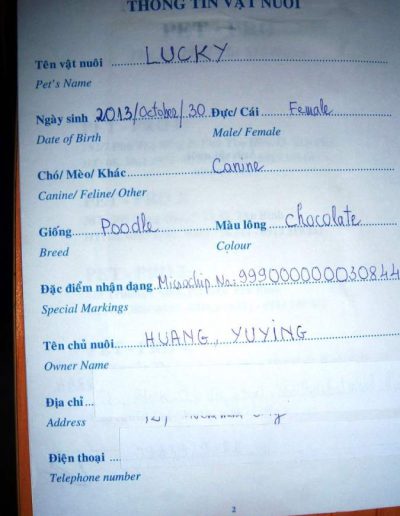 THÔNG TIN VẬT NUÔI
Tên vật nuôi LUCKY
Pet's Name
Ngày sinh 2013/October/30 Đực/ Cái Female
Date of Birth Male/ Female
Chó/ Mèo/ Khác Canine
Canine/ Feline/ Other
Giống Poodle Màu lông Chocolate
Breed Colour
Đặc điểm nhận dạng Microchip No: 999000000030844
Special Markings
Tên chủ nuôi HUANG, YUYING
Owner Name
Địa chỉ
Address
Điện thoại
Telephone number
2